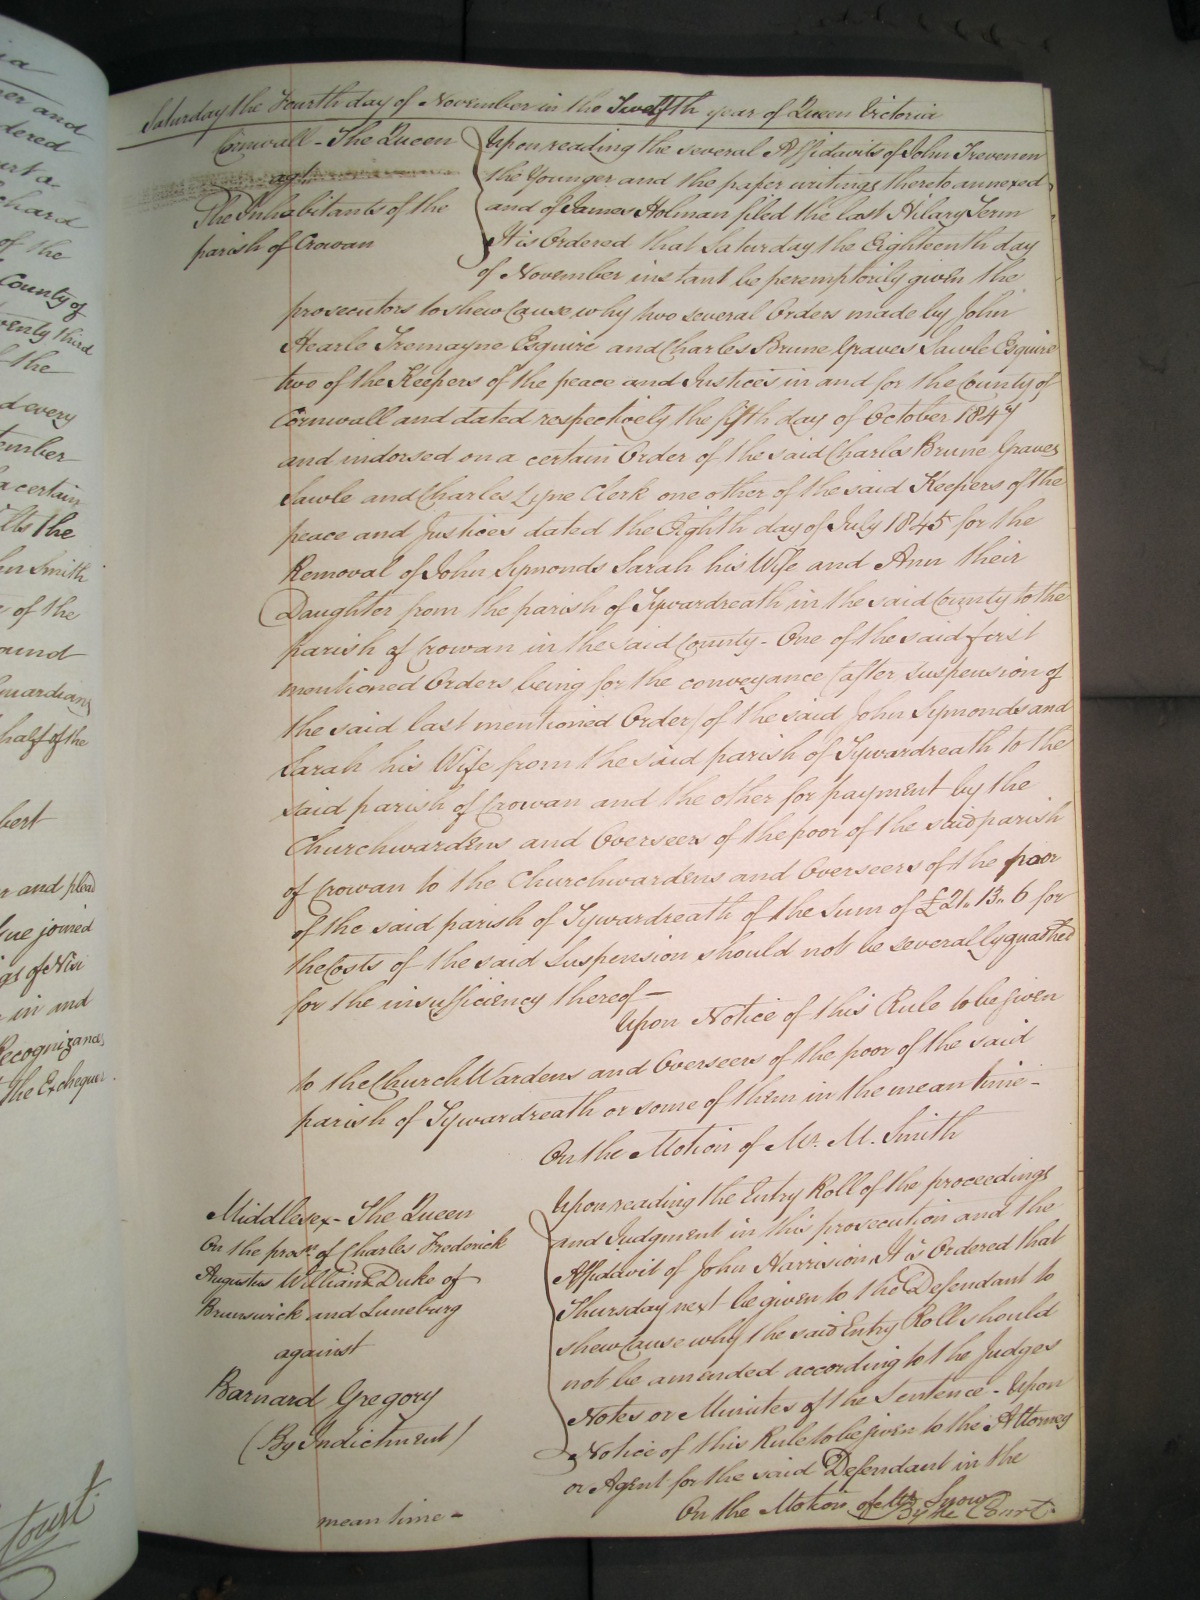 Saturday the Fourth day of November in the Twelfth year of Queen Victoria
Cornwall - The Queen
agt.
The Inhabitants of the
parish of Crowan
Upon reading the several Affidavits of John Trevenen
the Younger and the paper writings thereto annexed
and of James Holman filed the last Hilary Term
It is Ordered that Saturday the Eighteenth day
of November instant be peremptorily given the
prosecutors to shew Cause why two several Orders made by John
Hearle Tremayne Esquire and Charles Brune Graves Sawle Esquire
two of the Keepers of the peace and Justices in and for the County of
Cornwall and dated respectively the fifth day of October 1847
and indorsed on a certain Order of the said Charles Brune Graves
Sawle and Charles Lyne Clerk one other of the said Keepers of the
peace and Justices dated the Eighth day of July 1845 for the
Removal of John Symonds Sarah his Wife and Ann their
Daughter from the parish of Tywardreath in the said County to the
parish of Crowan in the said County - One of the said first
mentioned Orders being for the conveyance (after suspension of
the said last mentioned Order) of the said John Symonds and
Sarah his Wife from the said parish of Tywardreath to the
said parish of Crowan and the other for payment by the
Churchwardens and Overseers of the poor of the said parish
of Crowan to the Churchwardens and Overseers of the poor
of the said parish of Tywardreath of the Sum of £21. 13. 6 for
the Costs of the said Suspension should not be severally quashed
for the insufficiency thereof -
Upon Notice of this Rule to be given
to the Church Wardens and Overseers of the poor of the said
parish of Tywardreath or some of them in the mean time -
On the Motion of Mr. M. Smith
Middlesex - The Queen
On the pros.n of Charles Frederick
Augustus William Duke of
Brunswick and Luneburg
against
Barnard Gregory
(By Indictment)
Upon reading the Entry Roll of the proceedings
and Judgment in this prosecution and the
Affidavit of John Harrision, It is Ordered that
Thursday next be given to the Defendant to
shew Cause why the said Entry Roll should
not be amended according to the Judges
Notes or Minutes of the Sentence - Upon
Notice of this Rule to be given to the Attorney
or Agent for the said Defendant in the
mean time -
On the Motion of Mr. Snow
By the Court